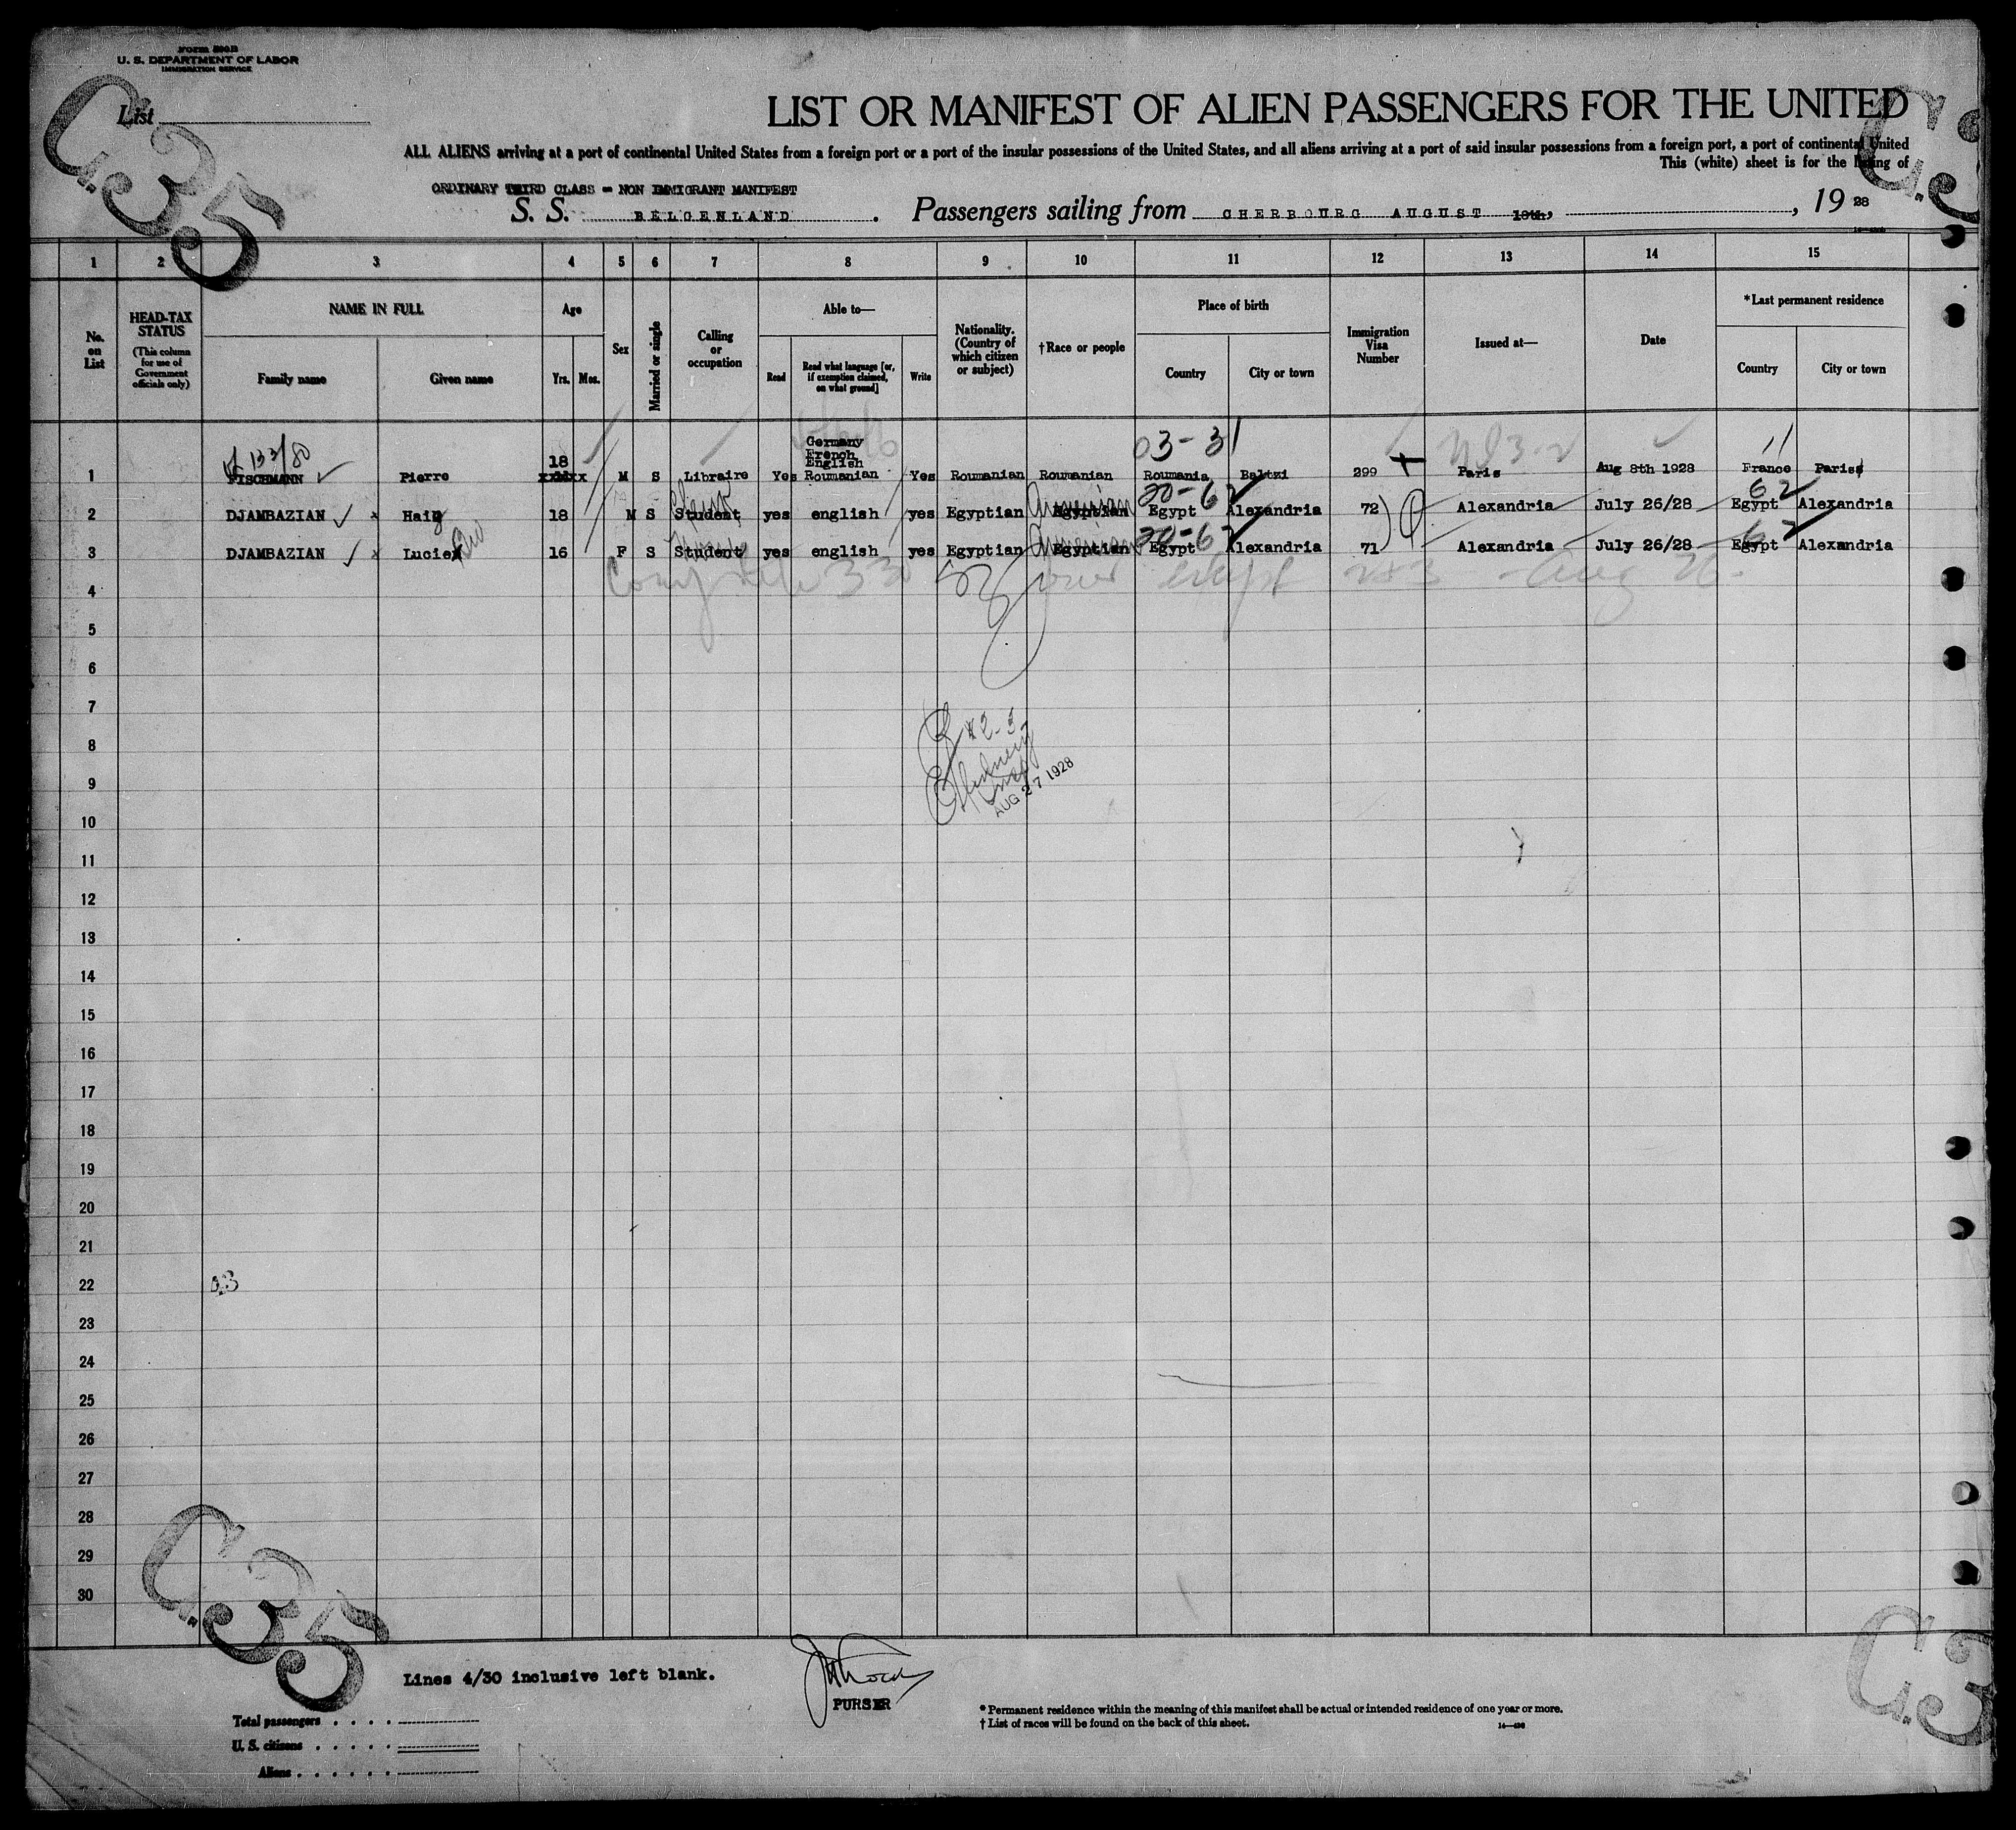 Form 500B
U. S. DEPARTMENT OF LABOR
IMMIGRATION SERVICE
List
C. 35
LIST OR MANIFEST OF ALIEN PASSENGERS FOR THE UNITED
ALL ALIENS arriving at a port of continental United States from a foreign port or a port of the insular possessions of the United States, and all aliens arriving at a port of said insular possessions from a foreign port, a port of continental United
This (white) sheet is for the listing of
ORDINARY THIRD CLASS - NON IMMIGRANT MANIFEST
S. S. BELGENLAND . Passengers sailing from CHERBOURG AUGUST 18th, , 19 28
1 2 3 4 5 6 7 8 9 10 11 12 13 14 15
No. on List
HEAD-TAX STATUS (This column for use of Government officials only)
NAME IN FULL Family name Given name
Age Yrs. Mos.
Sex
Married or single
Calling or occupation
Able to— Read Read what language [or, if exemption claimed, on what ground] Write
Nationality. (Country of which citizen or subject)
†Race or people
Place of birth Country City or town
Immigration Visa Number
Issued at—
Date
*Last permanent residence Country City or town
03-31 11
Germany
French
18 English
1 FISCHMANN Pierre xxxxx M S Libraire Yes Roumanian Yes Roumanian Roumanian Roumania Baltzi 299 Paris Aug 8th 1928 France Paris
Armenian 20-6 62
2 DJAMBAZIAN Haig 18 M S Student yes english yes Egyptian Egyptian Egypt Alexandria 72 Alexandria July 26/28 Egypt Alexandria
Armenian 20-6 62
3 DJAMBAZIAN Lucie 16 F S Student yes english yes Egyptian Egyptian Egypt Alexandria 71 Alexandria July 26/28 Egypt Alexandria
4
5
6
7
8
9
AUG 27 1928
10
11
12
13
14
15
16
17
18
19
20
21
22
23
24
25
26
27
28
29
30
C. 35
C. 3
Lines 4/30 inclusive left blank.
PURSER
Total passengers . . . .
U. S. citizens . . . . .
Aliens . . . . . .
* Permanent residence within the meaning of this manifest shall be actual or intended residence of one year or more.
† List of races will be found on the back of this sheet.